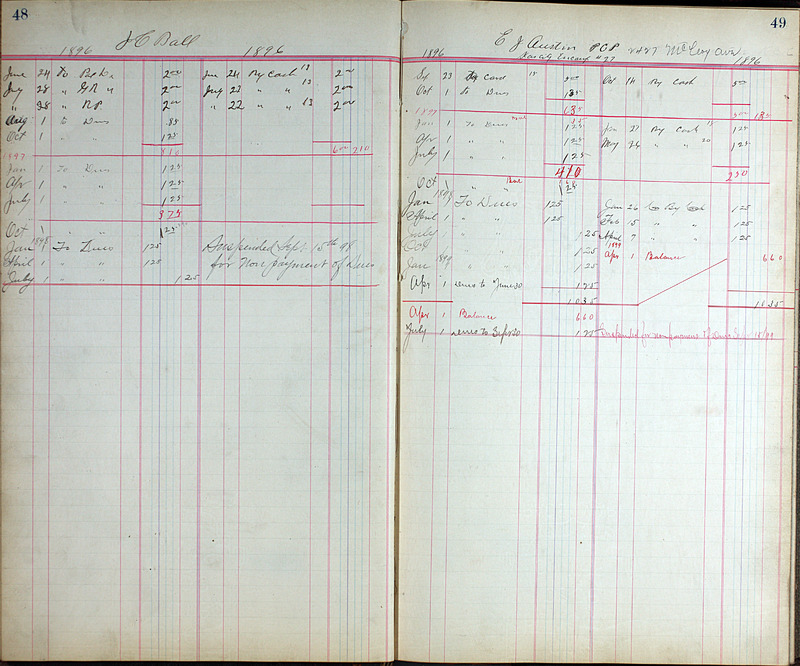 48
J C Ball
1896 1896
June 24 To 2 00 Jun 24 By Cash 13 2 00
July 28 " G R " 2 00 July 23 " " 13 2 00
" 28 " R P 2 00 " 22 " " 13 2 00
Aug 1 to Dues 85
Oct 1 " 1 25
8 10 6 00 2 10
1897
Jan 1 To Dues 1 25
Apr 1 " " 1 25
July 1 " " 1 25
3 75
Oct 1 " " 1 25
1898
Jan To Dues 1 25 Suspended Sept 15th 98
April 1 " " 1 25 for Non payment of Dues
July 1 " " 1 25
49
E J Austin P C P 2427 McCoy Ave
1896 Encamp #27 1896
23 Card 15 5 00 Oct 14 By Cash 5 00
Oct 1 to Dues 1 35
6 35 5 00 1 35
1897
Jan 1 To Dues 1 25 Jan 27 By Cash 15 1 25
Apr 1 " " 1 25 May 26 " " 20 1 25
July 1 " " 1 25
4 10 2 50
Oct 1 " " 1 25
1898
Jan 1 To Dues 1 25 Jan 26 By Cash 1 25
April 1 " " 1 25 Feb 15 " " 1 25
July " " 1 25 April 7 " " 1 25
Oct " " 1 25 1899 Apr 1 Balance 6 60
1899
Jan " " 1 25
Apr 1 Dues to June 30 1 25
10 35 10 35
Apr 1 Balance 6 60
July 1 Dues to Sept 30 1 25 Suspended for non payment of Dues 15/99